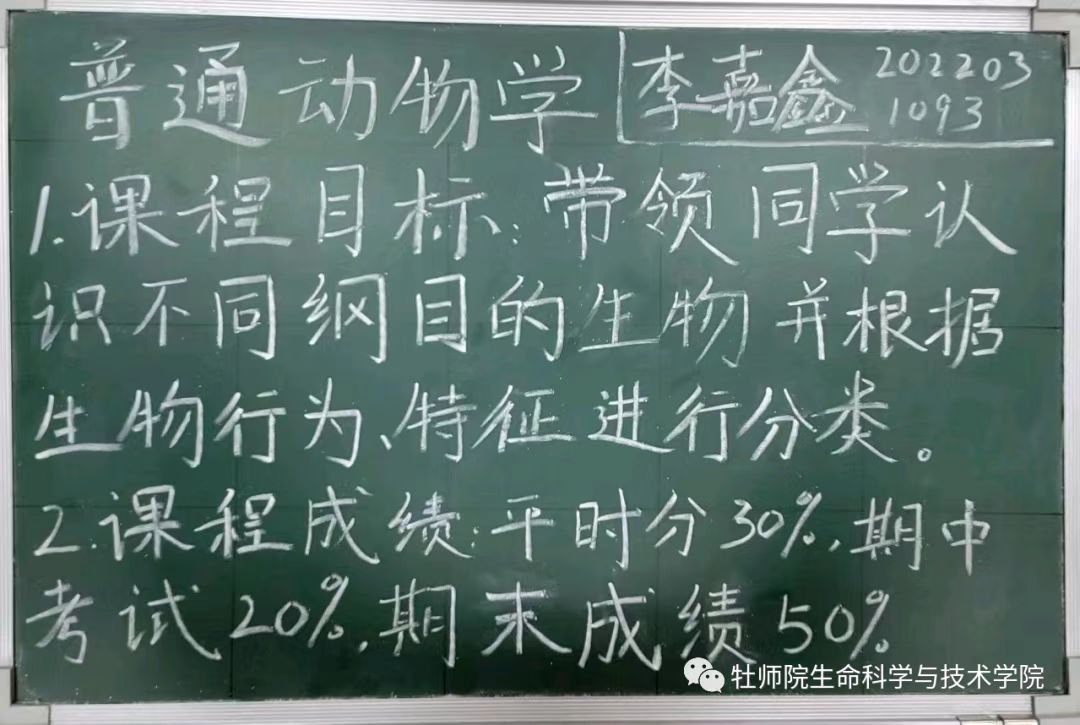 普通动物学
李嘉鑫 202203
1093
1.课程目标:带领同学认
识不同纲目的生物并根据
生物行为、特征进行分类。
2.课程成绩:平时分30%,期中
考试20%,期末成绩50%
牡师院生命科学与技术学院